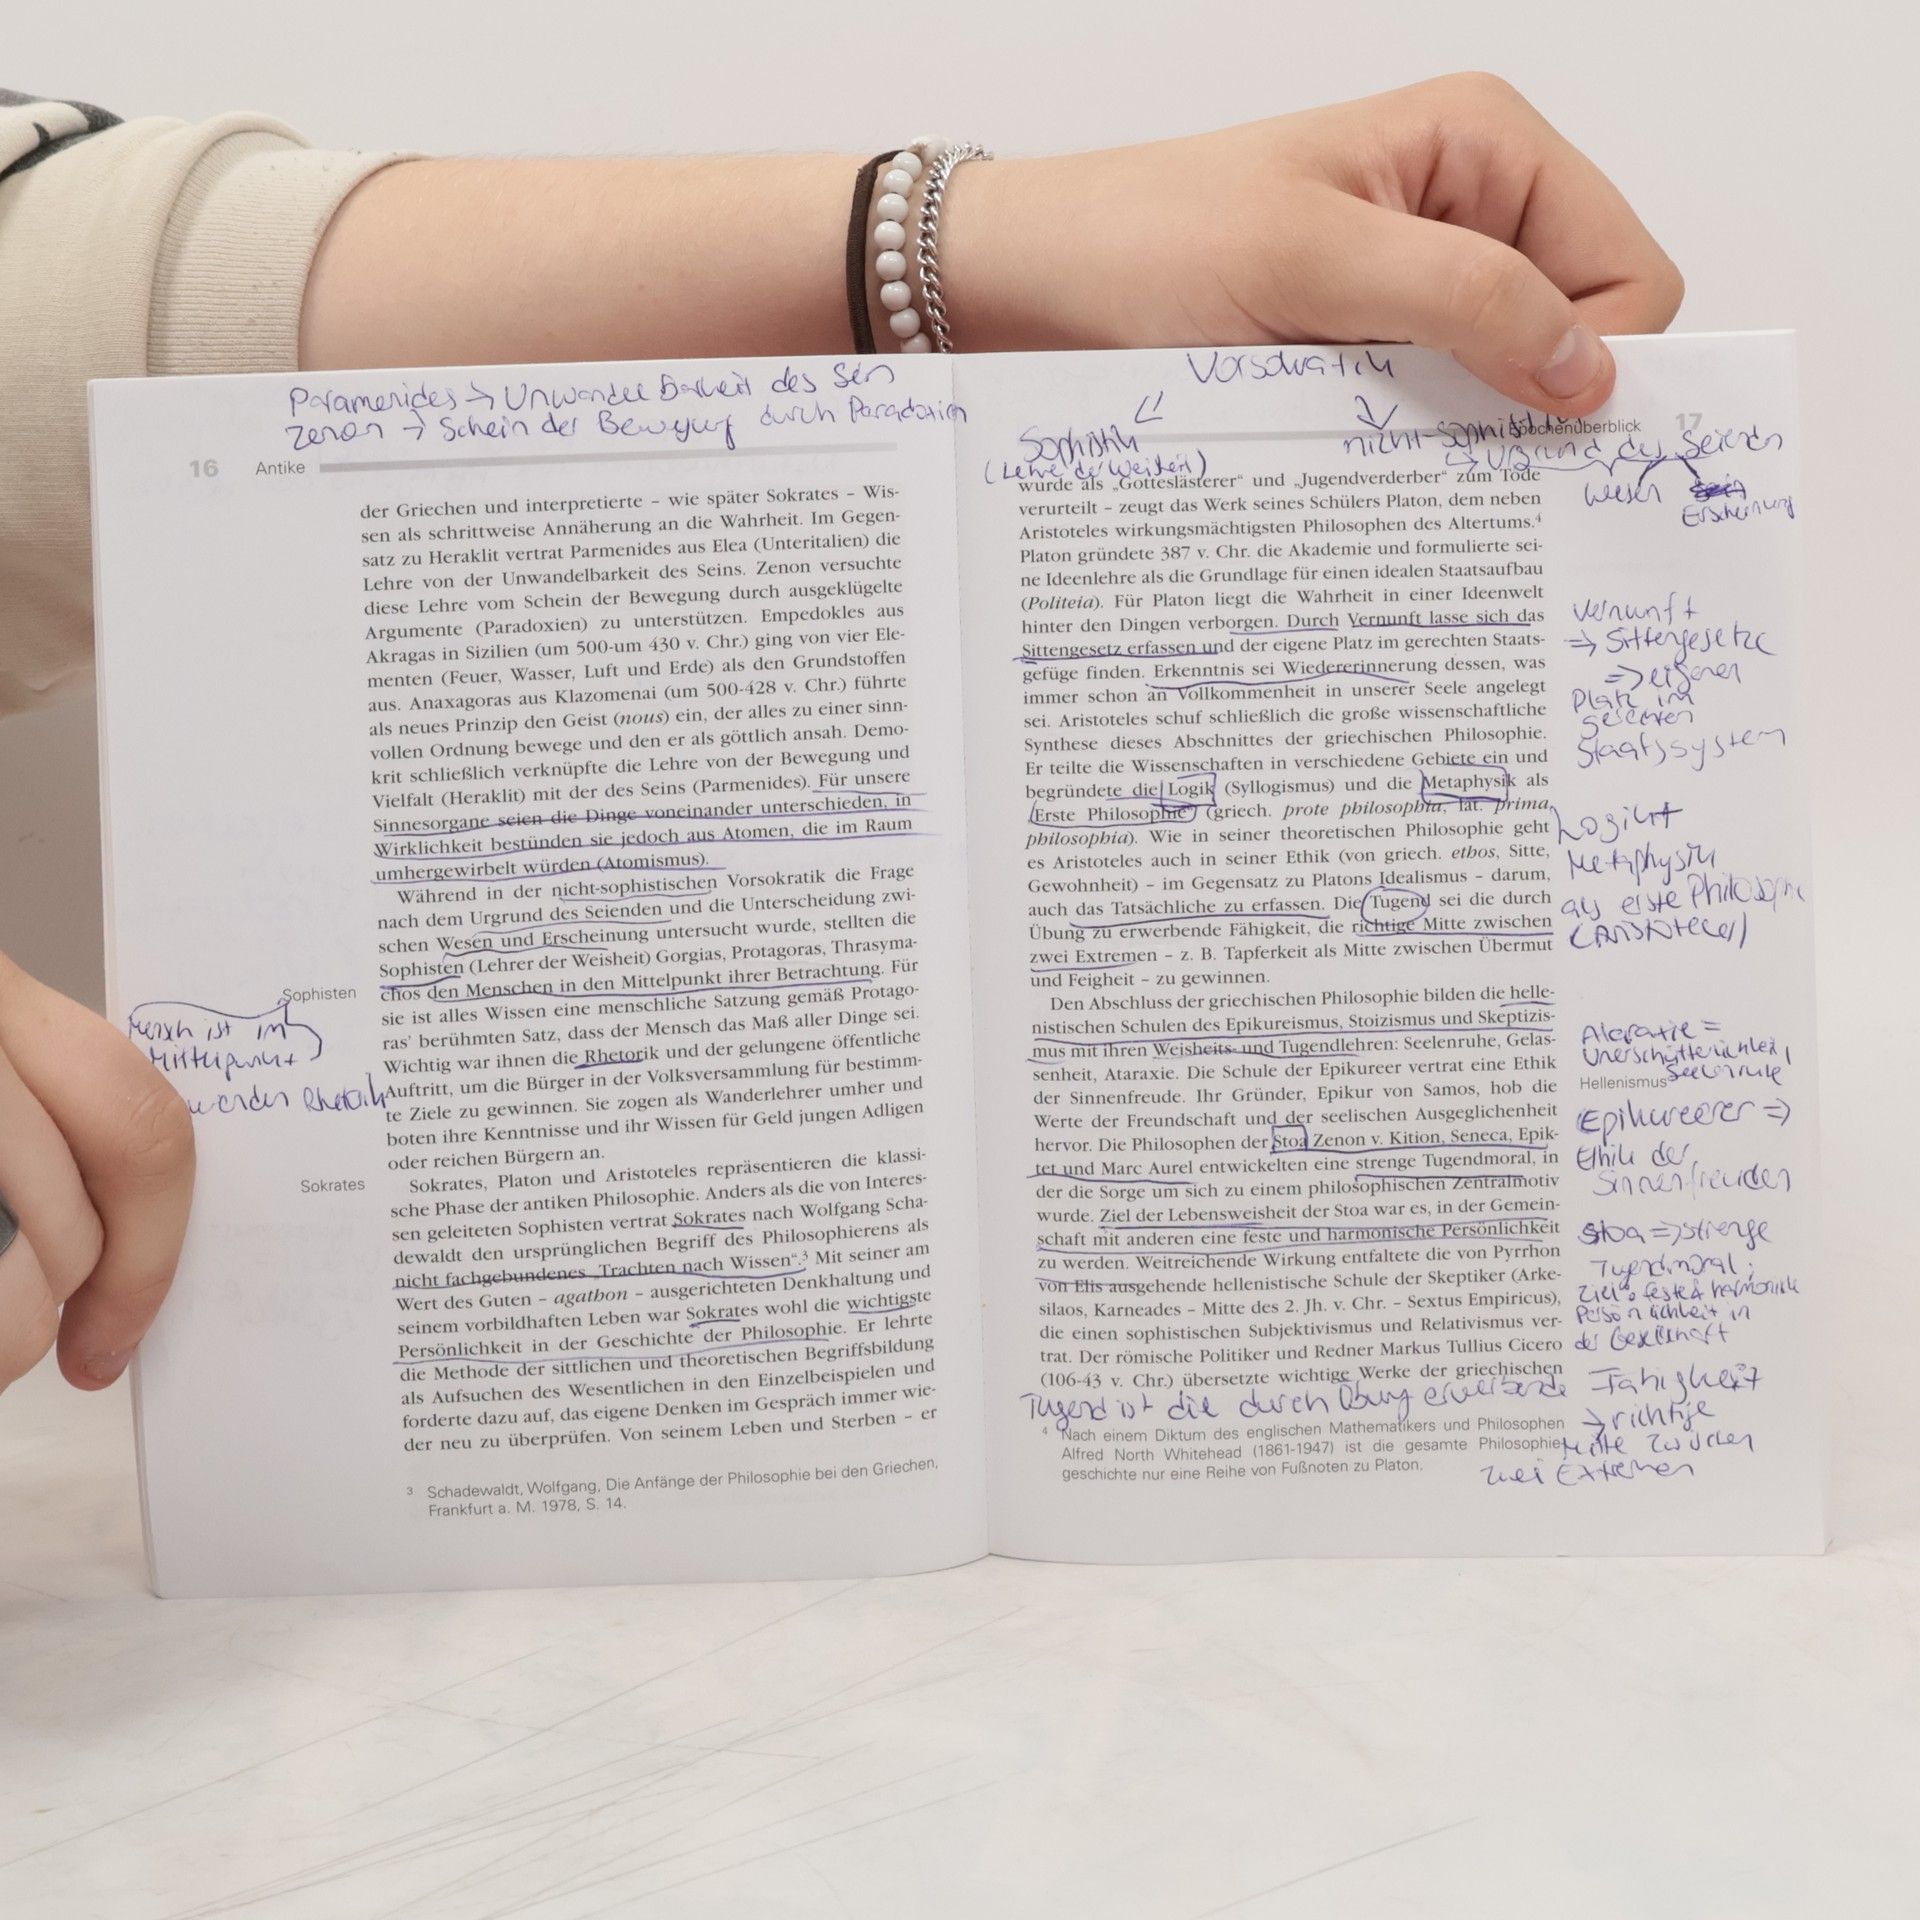 Paramenides → Unwandelbarkeit des Sein
Zenon → Schein der Bewegung durch Paradoxien
16 Antike
der Griechen und interpretierte – wie später Sokrates – Wis-
sen als schrittweise Annäherung an die Wahrheit. Im Gegen-
satz zu Heraklit vertrat Parmenides aus Elea (Unteritalien) die
Lehre von der Unwandelbarkeit des Seins. Zenon versuchte
diese Lehre vom Schein der Bewegung durch ausgeklügelte
Argumente (Paradoxien) zu unterstützen. Empedokles aus
Akragas in Sizilien (um 500-um 430 v. Chr.) ging von vier Ele-
menten (Feuer, Wasser, Luft und Erde) als den Grundstoffen
aus. Anaxagoras aus Klazomenai (um 500-428 v. Chr.) führte
als neues Prinzip den Geist (nous) ein, der alles zu einer sinn-
vollen Ordnung bewege und den er als göttlich ansah. Demo-
krit schließlich verknüpfte die Lehre von der Bewegung und
Vielfalt (Heraklit) mit der des Seins (Parmenides). Für unsere
Sinnesorgane seien die Dinge voneinander unterschieden, in
Wirklichkeit bestünden sie jedoch aus Atomen, die im Raum
umhergewirbelt würden (Atomismus).
Während in der nicht-sophistischen Vorsokratik die Frage
nach dem Urgrund des Seienden und die Unterscheidung zwi-
schen Wesen und Erscheinung untersucht wurde, stellten die
Sophisten (Lehrer der Weisheit) Gorgias, Protagoras, Thrasyma-
chos den Menschen in den Mittelpunkt ihrer Betrachtung. Für
sie ist alles Wissen eine menschliche Satzung gemäß Protago-
ras' berühmten Satz, dass der Mensch das Maß aller Dinge sei.
Wichtig war ihnen die Rhetorik und der gelungene öffentliche
Auftritt, um die Bürger in der Volksversammlung für bestimm-
te Ziele zu gewinnen. Sie zogen als Wanderlehrer umher und
boten ihre Kenntnisse und ihr Wissen für Geld jungen Adligen
oder reichen Bürgern an.
Sokrates, Platon und Aristoteles repräsentieren die klassi-
sche Phase der antiken Philosophie. Anders als die von Interes-
sen geleiteten Sophisten vertrat Sokrates nach Wolfgang Scha-
dewaldt den ursprünglichen Begriff des Philosophierens als
nicht fachgebundenes „Trachten nach Wissen“.³ Mit seiner am
Wert des Guten – agathon – ausgerichteten Denkhaltung und
seinem vorbildhaften Leben war Sokrates wohl die wichtigste
Persönlichkeit in der Geschichte der Philosophie. Er lehrte
die Methode der sittlichen und theoretischen Begriffsbildung
als Aufsuchen des Wesentlichen in den Einzelbeispielen und
forderte dazu auf, das eigene Denken im Gespräch immer wie-
der neu zu überprüfen. Von seinem Leben und Sterben – er
Sophisten
Mensch ist im
Mittelpunkt
werden Rhetorik
Sokrates
³ Schadewaldt, Wolfgang, Die Anfänge der Philosophie bei den Griechen,
Frankfurt a. M. 1978, S. 14.
Vorsokratik
Sophistik
(Lehre der Weisheit)
nicht-sophistisch
→ Urgrund des Seienden
Wesen
Erscheinung
Epochenüberblick 17
wurde als „Gotteslästerer“ und „Jugendverderber“ zum Tode
verurteilt – zeugt das Werk seines Schülers Platon, dem neben
Aristoteles wirkungsmächtigsten Philosophen des Altertums.⁴
Platon gründete 387 v. Chr. die Akademie und formulierte sei-
ne Ideenlehre als die Grundlage für einen idealen Staatsaufbau
(Politeia). Für Platon liegt die Wahrheit in einer Ideenwelt
hinter den Dingen verborgen. Durch Vernunft lasse sich das
Sittengesetz erfassen und der eigene Platz im gerechten Staats-
gefüge finden. Erkenntnis sei Wiedererinnerung dessen, was
immer schon an Vollkommenheit in unserer Seele angelegt
sei. Aristoteles schuf schließlich die große wissenschaftliche
Synthese dieses Abschnittes der griechischen Philosophie.
Er teilte die Wissenschaften in verschiedene Gebiete ein und
begründete die Logik (Syllogismus) und die Metaphysik als
„Erste Philosophie“ (griech. prote philosophia, lat. prima
philosophia). Wie in seiner theoretischen Philosophie geht
es Aristoteles auch in seiner Ethik (von griech. ethos, Sitte,
Gewohnheit) – im Gegensatz zu Platons Idealismus – darum,
auch das Tatsächliche zu erfassen. Die Tugend sei die durch
Übung zu erwerbende Fähigkeit, die richtige Mitte zwischen
zwei Extremen – z. B. Tapferkeit als Mitte zwischen Übermut
und Feigheit – zu gewinnen.
Den Abschluss der griechischen Philosophie bilden die helle-
nistischen Schulen des Epikureismus, Stoizismus und Skeptizis-
mus mit ihren Weisheits- und Tugendlehren: Seelenruhe, Gelas-
senheit, Ataraxie. Die Schule der Epikureer vertrat eine Ethik
der Sinnenfreude. Ihr Gründer, Epikur von Samos, hob die
Werte der Freundschaft und der seelischen Ausgeglichenheit
hervor. Die Philosophen der Stoa Zenon v. Kition, Seneca, Epik-
tet und Marc Aurel entwickelten eine strenge Tugendmoral, in
der die Sorge um sich zu einem philosophischen Zentralmotiv
wurde. Ziel der Lebensweisheit der Stoa war es, in der Gemein-
schaft mit anderen eine feste und harmonische Persönlichkeit
zu werden. Weitreichende Wirkung entfaltete die von Pyrrhon
von Elis ausgehende hellenistische Schule der Skeptiker (Arke-
silaos, Karneades – Mitte des 2. Jh. v. Chr. – Sextus Empiricus),
die einen sophistischen Subjektivismus und Relativismus ver-
trat. Der römische Politiker und Redner Markus Tullius Cicero
(106-43 v. Chr.) übersetzte wichtige Werke der griechischen
Vernunft
⇒ Sittengesetze
⇒ eigenen
Platz im
gerechten
Staatssystem
Logik +
Metaphysik
als erste Philosophie
(Aristoteles)
Ataraxie =
Unerschütterlichkeit,
Seelenruhe
Hellenismus
Epikureer ⇒
Ethik der
Sinnenfreuden
Stoa ⇒ strenge
Tugendmoral;
Ziel: feste & harmonische
Persönlichkeit in
der Gesellschaft
Tugend ist die durch Übung erwerbende Fähigkeit
→ richtige
Mitte zwischen
zwei Extremen
⁴ Nach einem Diktum des englischen Mathematikers und Philosophen
Alfred North Whitehead (1861-1947) ist die gesamte Philosophie-
geschichte nur eine Reihe von Fußnoten zu Platon.